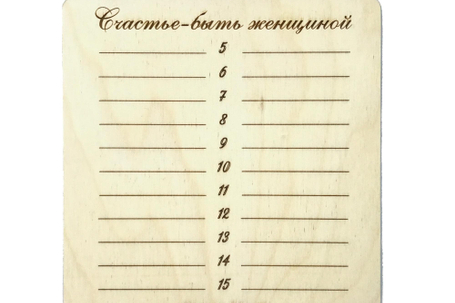 Счастье-быть женщиной
5
6
7
8
9
10
11
12
13
14
15